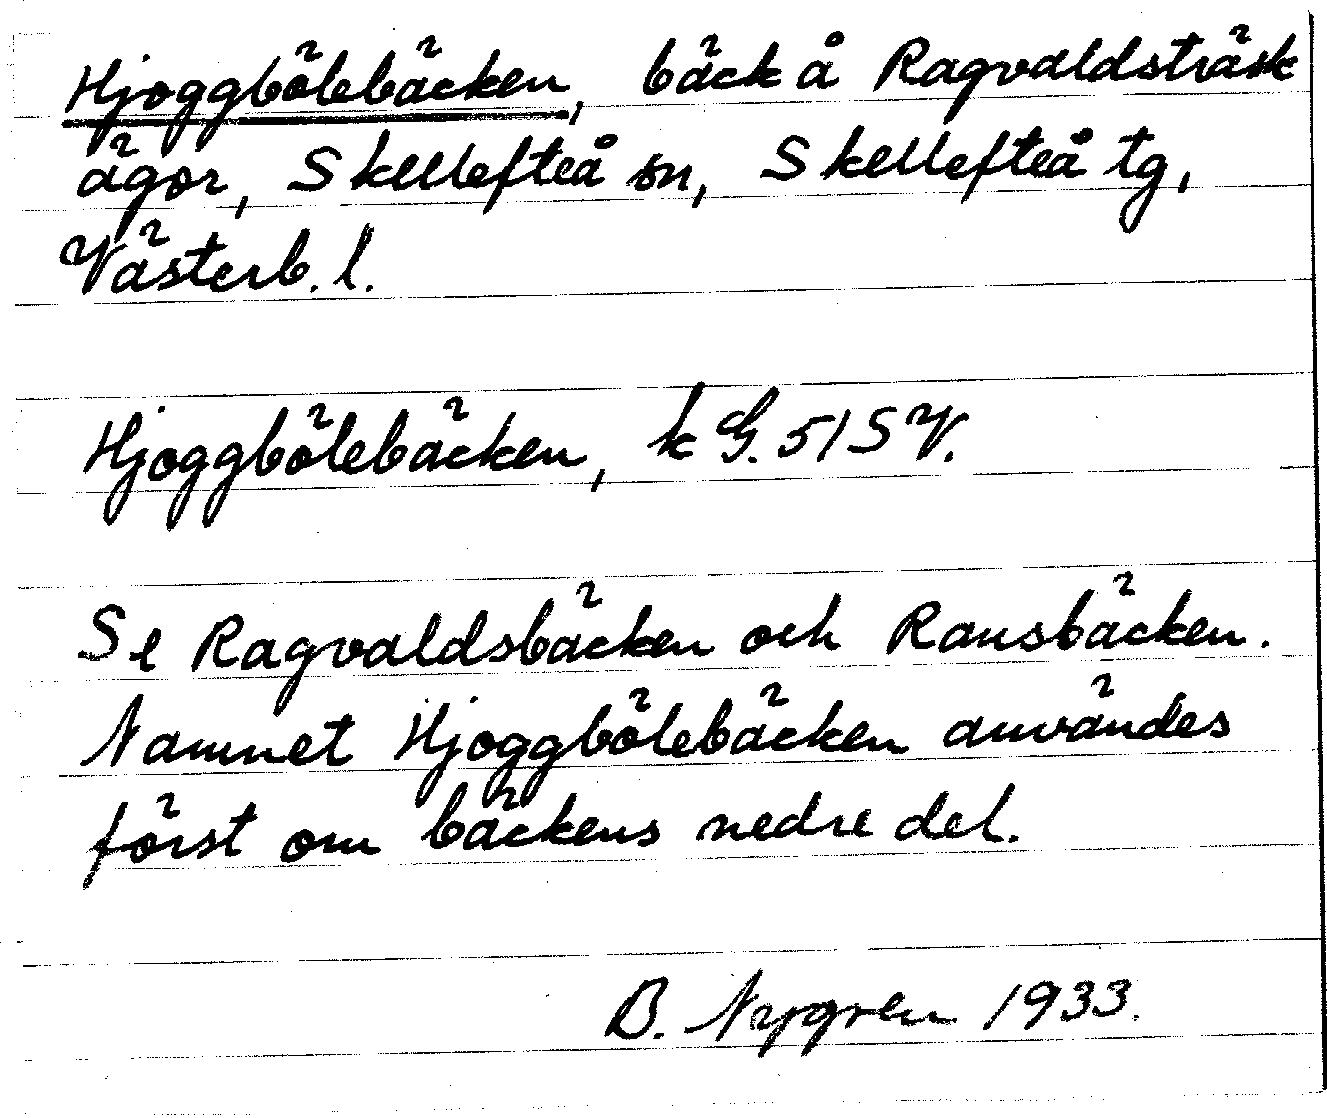 Hjoggbölebäcken, bäck å Ragvaldsträsk
ägor, Skellefteå sn, Skellefteå tg,
Västerb. l.
Hjoggbölebäcken, k G. 51 SV.
Se Ragvaldsbäcken och Ransbäcken.
Namnet Hjoggbölebäcken användes
först om bäckens nedre del.
B. Nygren 1933.